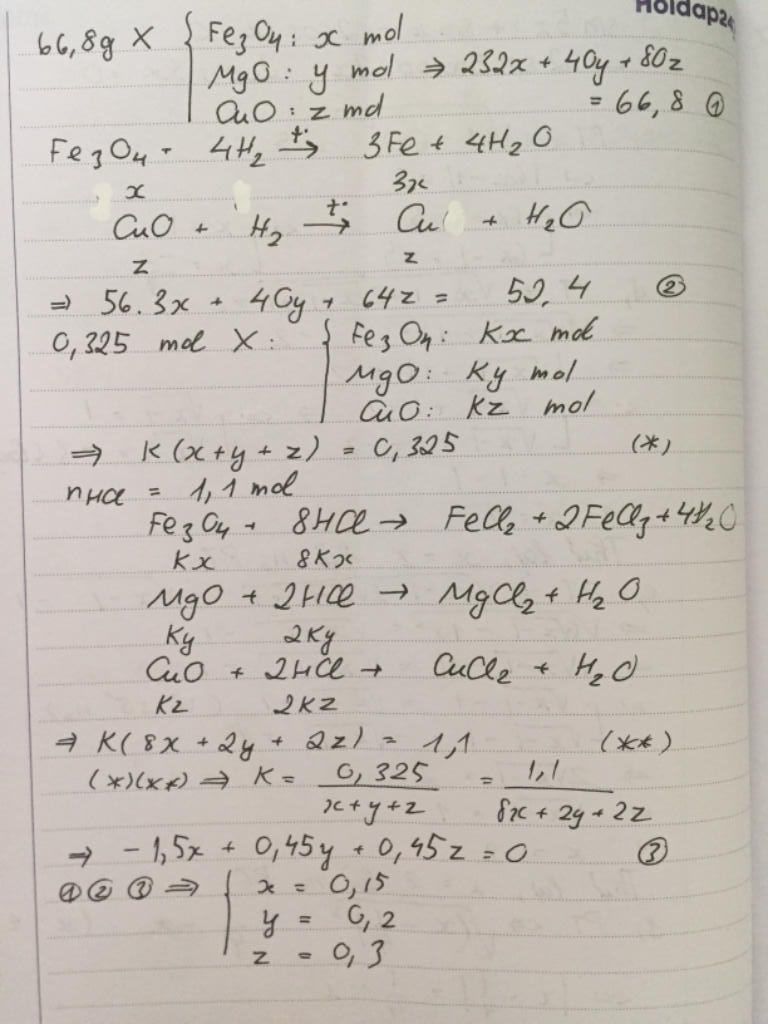 Hoidap24
66,8g X { Fe3O4 : x mol
MgO : y mol ⇒ 232x + 40y + 80z
CuO : z mol = 66,8 ①
Fe3O4 + 4H2 t°→ 3Fe + 4H2O
x 3x
CuO + H2 t°→ Cu + H2O
z z
⇒ 56.3x + 40y + 64z = 52,4 ②
0,325 mol X : { Fe3O4 : Kx mol
MgO : Ky mol
CuO : Kz mol
⇒ K(x+y+z) = 0,325 (*)
nHCl = 1,1 mol
Fe3O4 + 8HCl → FeCl2 + 2FeCl3 + 4H2O
Kx 8Kx
MgO + 2HCl → MgCl2 + H2O
Ky 2Ky
CuO + 2HCl → CuCl2 + H2O
Kz 2Kz
⇒ K(8x + 2y + 2z) = 1,1 (**)
(*)(**) ⇒ K = 0,325 / (x+y+z) = 1,1 / (8x + 2y + 2z)
⇒ -1,5x + 0,45y + 0,45z = 0 ③
①②③ ⇒ { x = 0,15
y = 0,2
z = 0,3